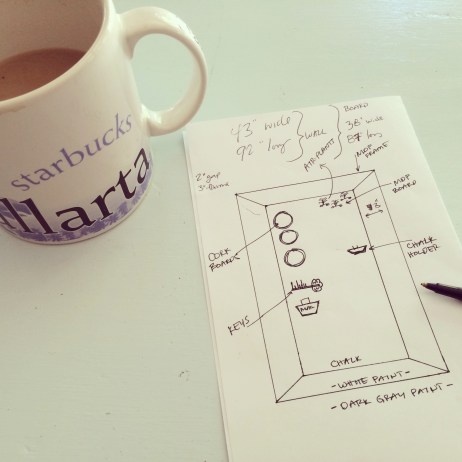 starbucks
llarta
BOARD
43" wide
92" long
WALL
38" wide
87 long
AIR-PLANTS
MDF
FRAME
2" gap
3" frame
MDF
BOARD
CORK
BOARDS
CHALK
HOLDER
KEYS
MAIL
CHALK
-WHITE PAINT-
-DARK GRAY PAINT-